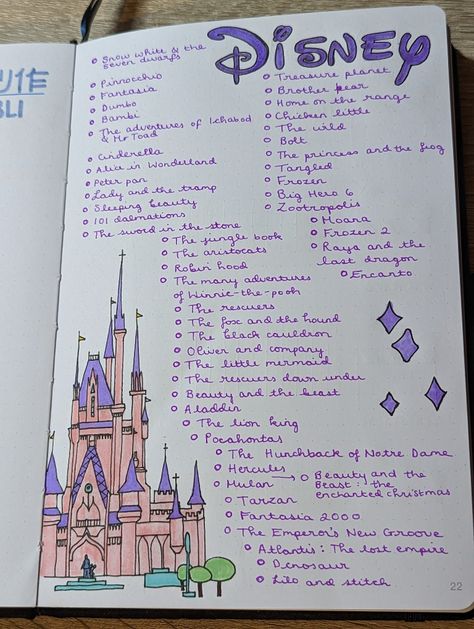 リ作
BLI
DISNEY
Snow white & the
seven dwarfs
Pinnocchio
Fantasia
Dumbo
Bambi
The adventures of Ichabod
& Mr Toad
Cinderella
Alice in Wonderland
Peter pan
Lady and the tramp
Sleeping beauty
101 dalmations
The sword in the stone
The jungle book
The aristocats
Robin hood
The many adventures
of Winnie-the-pooh
The rescuers
The fox and the hound
The black cauldron
Oliver and company
The little mermaid
The rescuers down under
Beauty and the beast
Aladdin
The lion king
Pocahontas
The Hunchback of Notre Dame
Hercules
Mulan → Beauty and the
Beast: the
enchanted christmas
Tarzan
Fantasia 2000
The Emperor's New Groove
Atlantis: The lost empire
Dinosaur
Lilo and stitch
Treasure planet
Brother bear
Home on the range
Chicken little
The wild
Bolt
The princess and the frog
Tangled
Frozen
Big Hero 6
Zootropolis
Moana
Frozen 2
Raya and the
last dragon
Encanto
22